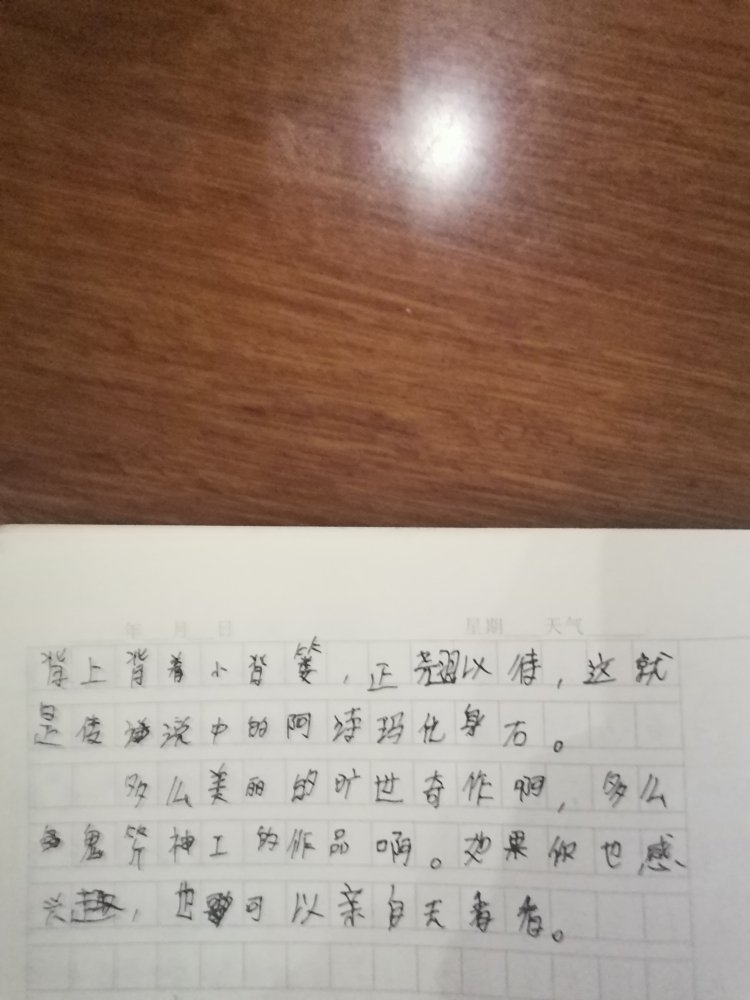 年 月 日 星期 天气
背上背着小背篓，正翘以待，这就
是传说中的阿诗玛化身石。
多么美丽的旷世奇作啊，多么
鬼斧神工的作品啊。如果你也感
兴趣，也可以亲自去看看。